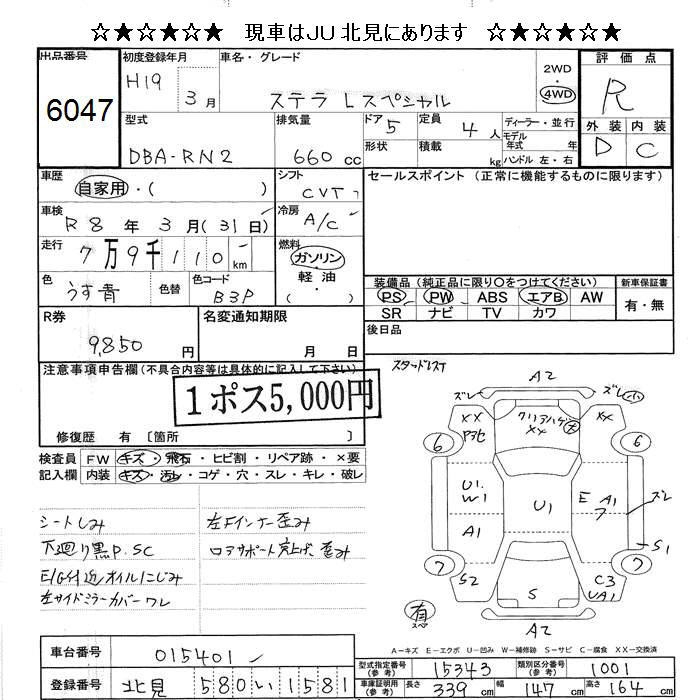 ☆★☆★☆★ 現車はJU北見にあります ☆★☆★☆★
出品番号 初度登録年月 車名・グレード 評価点
6047 H19 3月 ステラ Lスペシャル 2WD 4WD R
型式 排気量 ドア 5 定員 4人 ディーラー・並行 外装 内装
DBA-RN2 660cc 形状 積載 kg モデル年式 年 ハンドル 左・右 D C
車歴 自家用・( ) シフト CVT セールスポイント (正常に機能するものに限ります)
車検 R8年 3月(31日) 冷房 A/C
走行 7万9千110km 燃料 ガソリン・軽油 ( )
色 うす青 色替 色コード B3P
装備品 (純正品に限り○をつけてください) 新車保証書
PS PW ABS エアB AW 有・無
SR ナビ TV カワ
R券 9,850円 名変通知期限 月 日 後日品
注意事項申告欄 (不具合内容等は具体的に記入して下さい)
1ポス5,000円
修復歴 有 〔箇所 〕
検査員 FW キズ・飛石・ヒビ割・リペア跡・×要
記入欄 内装 キズ・汚レ・コゲ・穴・スレ・キレ・破レ
シートしみ 左Fインナー歪み
下廻り黒P.SC ロアサポート突上げ歪み
E/G付近オイルにじみ
左サイドミラーカバーワレ
スタッドレスT
A2
ズレ ズレ 小
XX クリアハゲ 大 XX
XX
6 6
U1. W1 U1 E A1 ズレ
A1 7 S1
7 7
S2 S C3 UA1
有 スペア
A2
A-キズ E-エクボ U-凹み W-補修跡 S-サビ C-腐食 XX-交換済
車台番号 015401
登録番号 北見 580 い 1581
型式指定番号 (参考) 15343 類別区分番号 (参考) 1001
車庫証明用 (参考) 長さ 339cm 幅 147cm 高さ 164cm